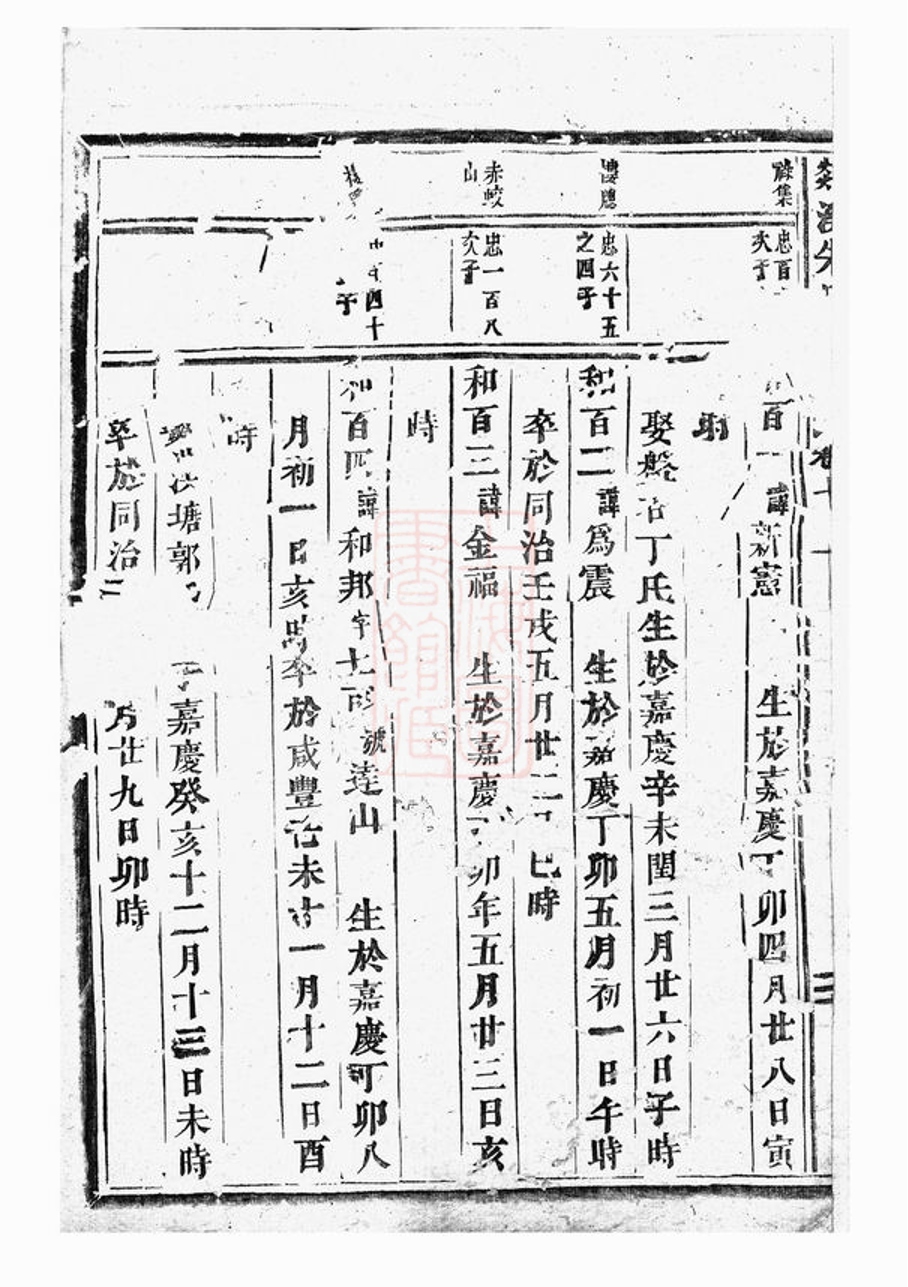 祿集
忠百
次子
百 諱新憲 生於嘉慶丁卯四月廿八日寅
時
娶 丁氏生於嘉慶辛未閏三月廿六日子時
忠六十五
之四子
和百二 諱為震 生於嘉慶丁卯五月初一日午時
卒於同治壬戌五月廿二 巳時
赤蛟
山
忠一百八
次子
和百三 諱金福 生於嘉慶 卯年五月廿三日亥
時
四十
子
和百四 諱和邦 字 號達山 生於嘉慶丁卯八
月初一日亥時卒於咸豐 未十一月十二日酉
時
塘郭 嘉慶癸亥十二月十三日未時
卒於同治 月廿九日卯時